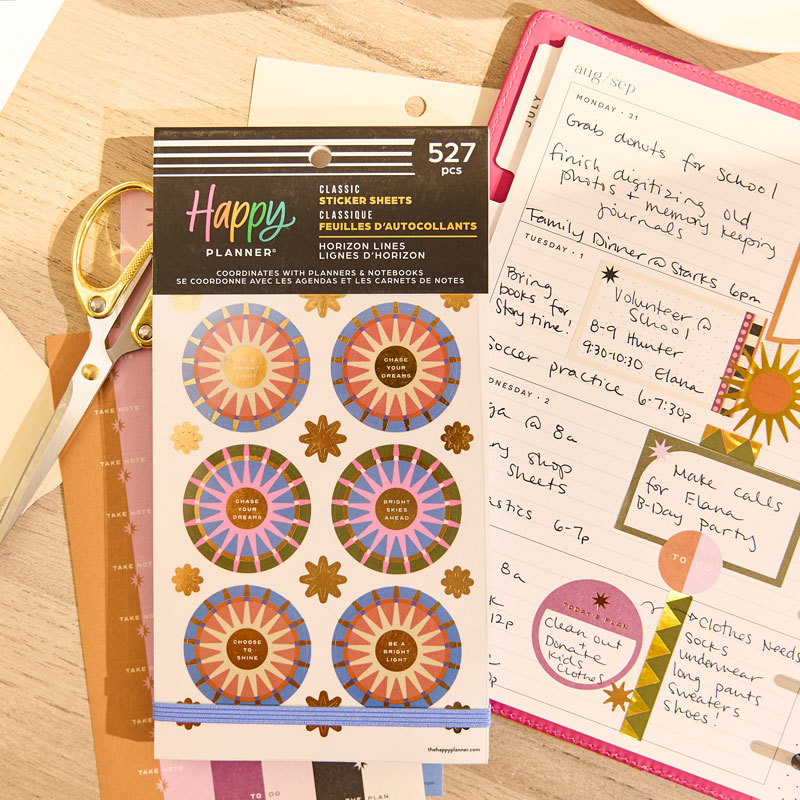 527
pcs
CLASSIC
STICKER SHEETS
CLASSIQUE
FEUILLES D'AUTOCOLLANTS
Happy
PLANNER®
HORIZON LINES
LIGNES D'HORIZON
COORDINATES WITH PLANNERS & NOTEBOOKS
SE COORDONNE AVEC LES AGENDAS ET LES CARNETS DE NOTES
BE A
BRIGHT
LIGHT
CHASE
YOUR
DREAMS
CHASE
YOUR
DREAMS
BRIGHT
SKIES
AHEAD
CHOOSE
TO
SHINE
BE A
BRIGHT
LIGHT
thehappyplanner.com
TAKE NOTE
TAKE NOTE
TAKE NOTE
TAKE NOTE
TAKE NOTE
TAKE NOTE
TAKE NOTE
TO DO
THE PLAN
JULY
aug/sep
MONDAY · 31
Grab donuts for School
finish digitizing old
photos + memory keeping
journals
Family Dinner @ Starks 6pm
TUESDAY · 1
Bring
books for
Story time!
Volunteer @
School
8-9 Hunter
9:30-10:30 Elana
Soccer practice 6-7:30p
DNESDAY · 2
ga @ 8a
ny shop
Sheets
astics 6-7p
Make calls
for Elana
B-Day party
TO DO
8a
12p
TODAY'S PLAN
Clean out
+
Donate
Kids
Clothes
Clothes Needs
Socks
underwear
long pants
sweaters
shoes!